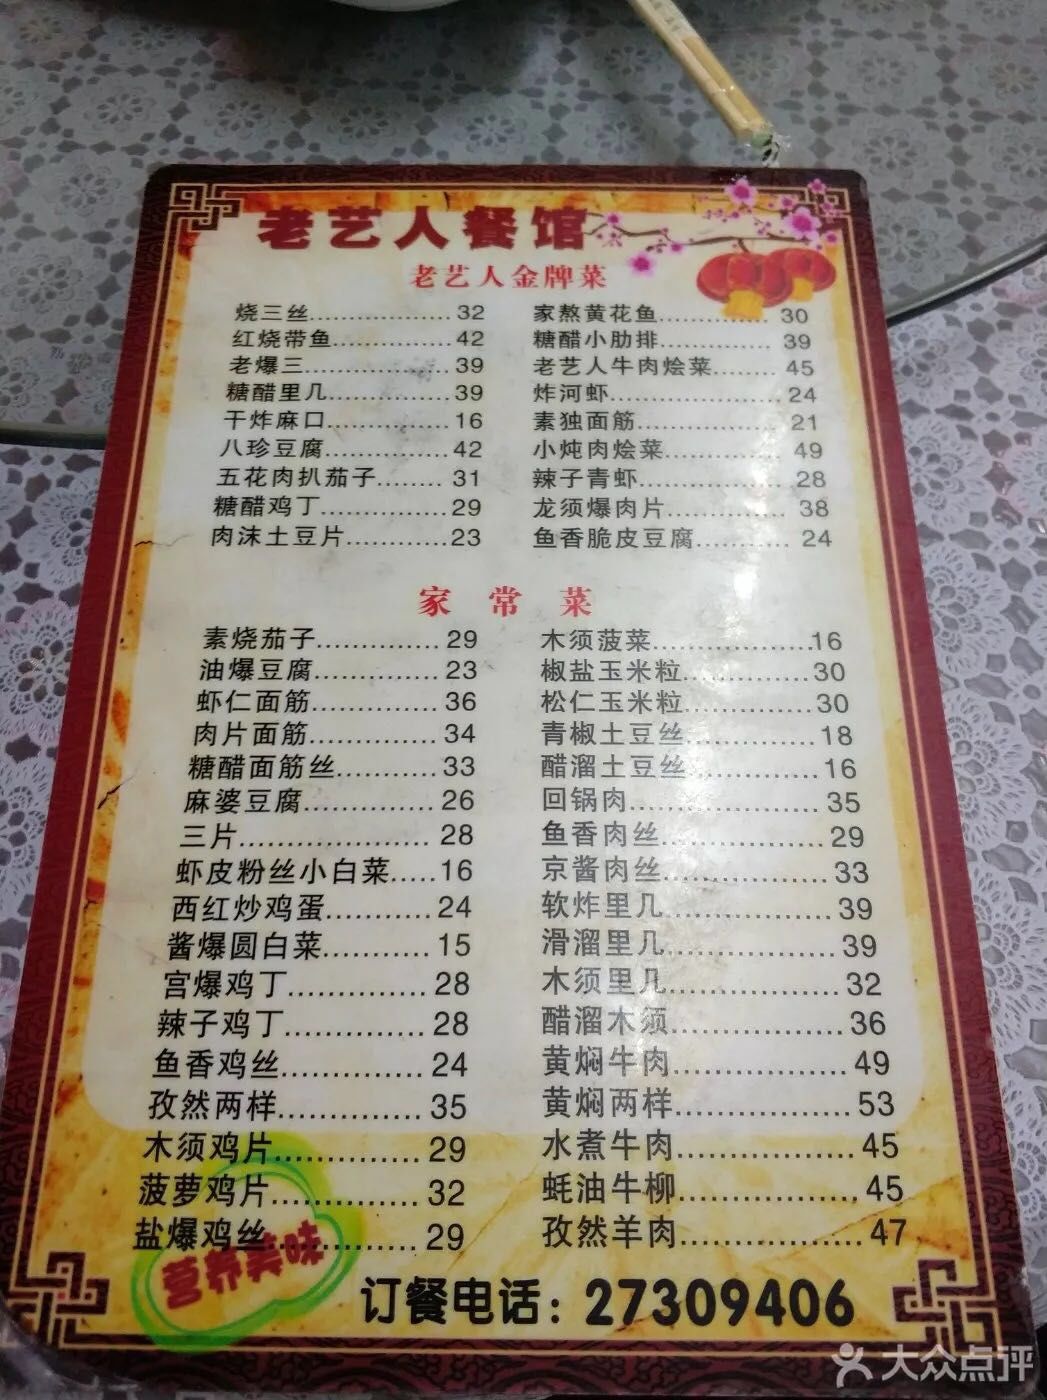 老艺人餐馆
老艺人金牌菜
烧三丝..................32
红烧带鱼...............42
老爆三...................39
糖醋里几...............39
干炸麻口...............16
八珍豆腐...............42
五花肉扒茄子........31
糖醋鸡丁...............29
肉沫土豆片............23
家熬黄花鱼..............30
糖醋小肋排..............39
老艺人牛肉烩菜........45
炸河虾......................24
素独面筋..................21
小炖肉烩菜..............49
辣子青虾..................28
龙须爆肉片..............38
鱼香脆皮豆腐...........24
家常菜
素烧茄子...............29
油爆豆腐...............23
虾仁面筋...............36
肉片面筋...............34
糖醋面筋丝............33
麻婆豆腐...............26
三片......................28
虾皮粉丝小白菜.....16
西红炒鸡蛋............24
酱爆圆白菜............15
宫爆鸡丁...............28
辣子鸡丁...............28
鱼香鸡丝...............24
孜然两样...............35
木须鸡片...............29
菠萝鸡片...............32
盐爆鸡丝...............29
木须菠菜..................16
椒盐玉米粒..............30
松仁玉米粒..............30
青椒土豆丝..............18
醋溜土豆丝..............16
回锅肉......................35
鱼香肉丝..................29
京酱肉丝..................33
软炸里几..................39
滑溜里几..................39
木须里几..................32
醋溜木须..................36
黄焖牛肉..................49
黄焖两样..................53
水煮牛肉..................45
蚝油牛柳..................45
孜然羊肉..................47
营养美味
订餐电话：27309406
大众点评